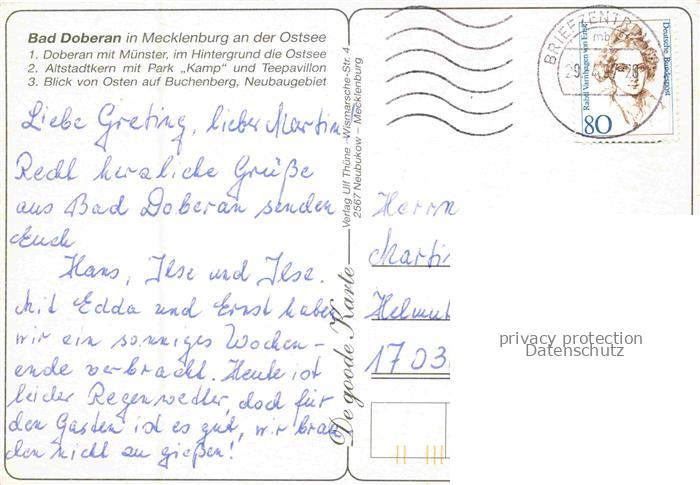 Bad Doberan in Mecklenburg an der Ostsee
1. Doberan mit Münster, im Hintergrund die Ostsee
2. Altstadtkern mit Park „Kamp“ und Teepavillon
3. Blick von Osten auf Buchenberg, Neubaugebiet
Liebe Greting, lieber Martin
Recht herzliche Grüße
aus Bad Doberan senden
Euch
Hans, Ilse und Ilse.
Mit Edda und Ernst haben
wir ein sonniges Wochen-
ende verbracht. Heute ist
leider Regenwetter, doch für
den Garten ist es gut, wir brau
chen nicht zu gießen!
Verlag Ulf Thüne -Wismarsche-Str. 4
2567 Neubukow – Mecklenburg
De goode Karte
BRIEFZENTRUM
Deutsche Bundespost
Rahel Varnhagen von Ense
80
Herrn
Martin
Helmut
1703
privacy protection
Datenschutz